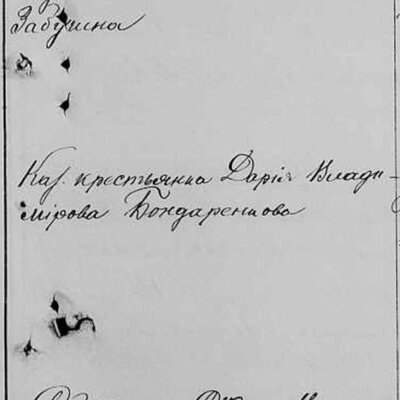 Забушина
Каз. крестьянка Дарія Влади-
мірова Бондаренкова